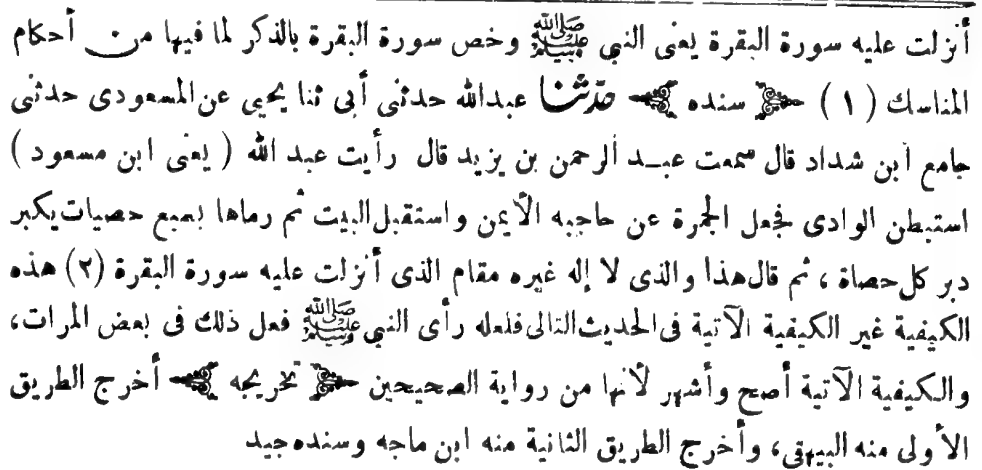 أنزلت عليه سورة البقرة يعنى النبى ﷺ وخص سورة البقرة بالذكر لما فيها من أحكام
المناسك (١) ﴿ سنده ﴾ حدّثنا عبدالله حدثنى أبى ثنا يحيى عن المسعودى حدثنى
جامع ابن شداد قال سمعت عبـد الرحمن بن يزيد قال رأيت عبد الله (يعنى ابن مسعود)
استبطن الوادى فجعل الجمرة عن حاجبه الأيمن واستقبل البيت ثم رماها بسبع حصيات يكبر
دبر كل حصاة ، ثم قال هذا والذى لا إله غيره مقام الذى أنزلت عليه سورة البقرة (٢) هذه
الكيفية غير الكيفية الآتية فى الحديث التالى فلعله رأى النبى ﷺ فعل ذلك فى بعض المرات،
والكيفية الآتية أصح وأشهر لأنها من رواية الصحيحين ﴿ تخريجه ﴾ أخرج الطريق
الأولى منه البيهقى، وأخرج الطريق الثانية منه ابن ماجه وسنده جيد